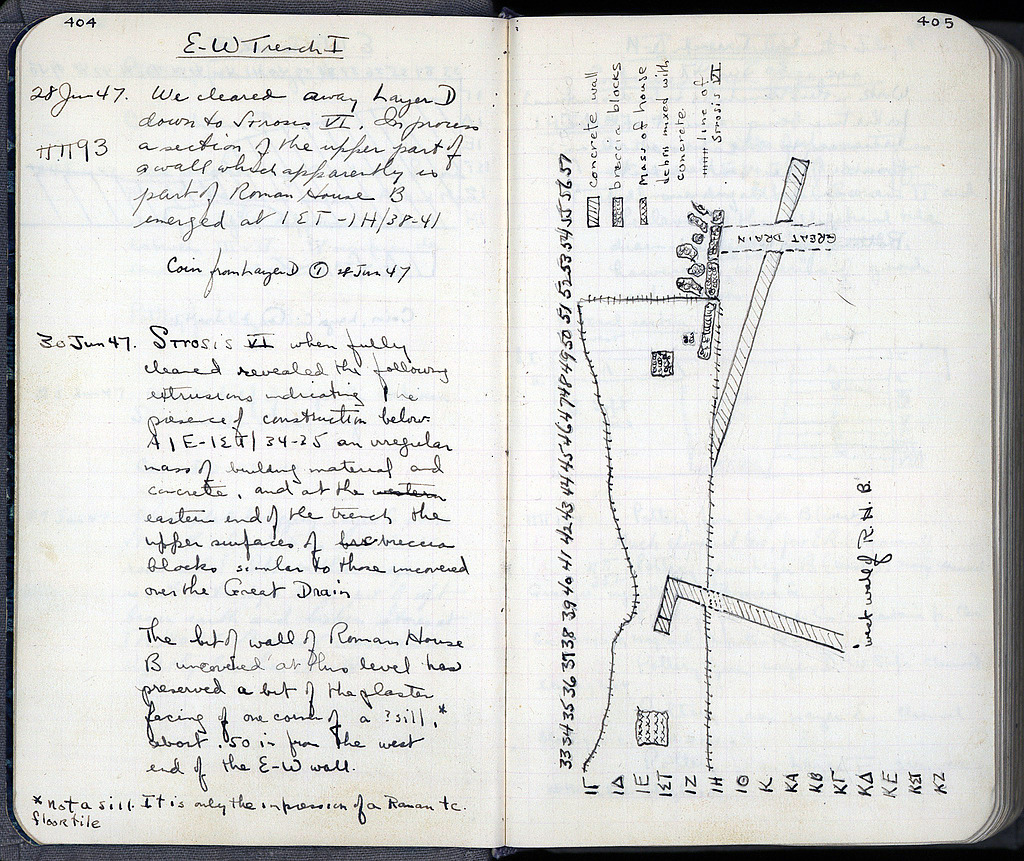 404
E-W Trench I
28 Jun 47. We cleared away Layer D
down to Strosis VI. In process
ΠΠ93 a section of the upper part of
a wall which apparently is
part of Roman House B
emerged at ΙΣΤ-ΙΗ/38-41
Coin from Layer D ① 28 Jun 47
30 Jun 47. Strosis VI when fully
cleared revealed the following
extrusions indicating the
presence of construction below:
At ΙΕ-ΙΣΤ/34-35 an irregular
mass of building material and
concrete, and at the western
eastern end of the trench the
upper surfaces of breccia
blocks similar to those uncovered
over the Great Drain
The bit of wall of Roman House
B uncovered at this level has
preserved a bit of the plaster
facing of one corner of a ?sill,*
about .50 in from the west
end of the E-W wall.
* Not a sill. It is only the impression of a Roman t.c.
floor tile
405
concrete wall
breccia blocks
Mass of house
debris mixed with
concrete
line of
Strosis VI
33 34 35 36 37 38 39 40 41 42 43 44 45 46 47 48 49 50 51 52 53 54 55 56 57
GREAT DRAIN
west wall of R. H. B.
ΙΓ
ΙΔ
ΙΕ
ΙΣΤ
ΙΖ
ΙΗ
ΙΘ
Κ
ΚΑ
ΚΒ
ΚΓ
ΚΔ
ΚΕ
ΚΣΤ
ΚΖ